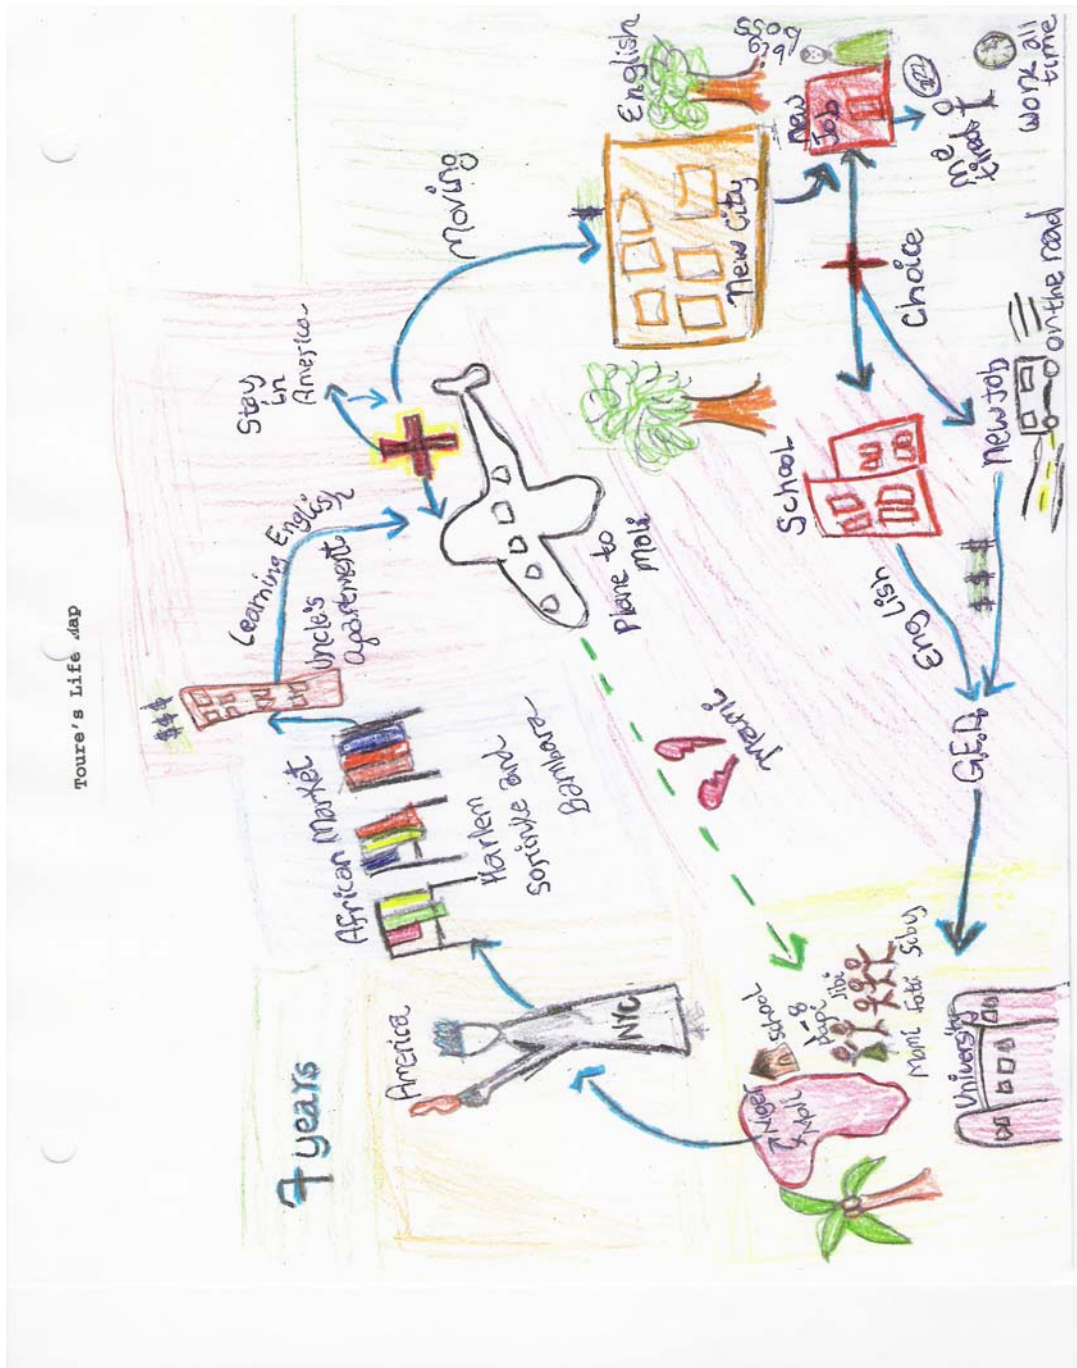 Toure's Life Map
7 years
America
NYC
African Market
Harlem
Sorinke and
Bambara
$$$
Uncle's
apartment
Learning English
Stay
in
America
Moving
Plane to
Mali
$
New City
English
New
Job
zzz
me
tired
work all
time
Choice
School
English
New Job
on the road
$ $ $
G.E.D.
University
Niger
& Mali
school
1-8
Papi
Jibi
Mami